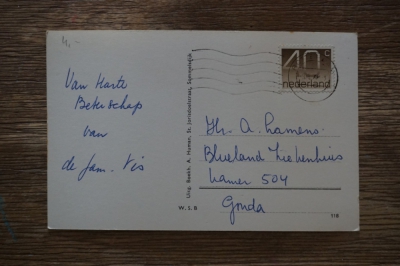 4,-
Van Harte
Beterschap
van
de fam. Vis
Uitg. Boekh. A. Homan, St. Jorisdoelstraat,
W.S.B
40 c
nederland
Hr. A. Lamens
Blueland Ziekenhuis
kamer 504
Gouda
118